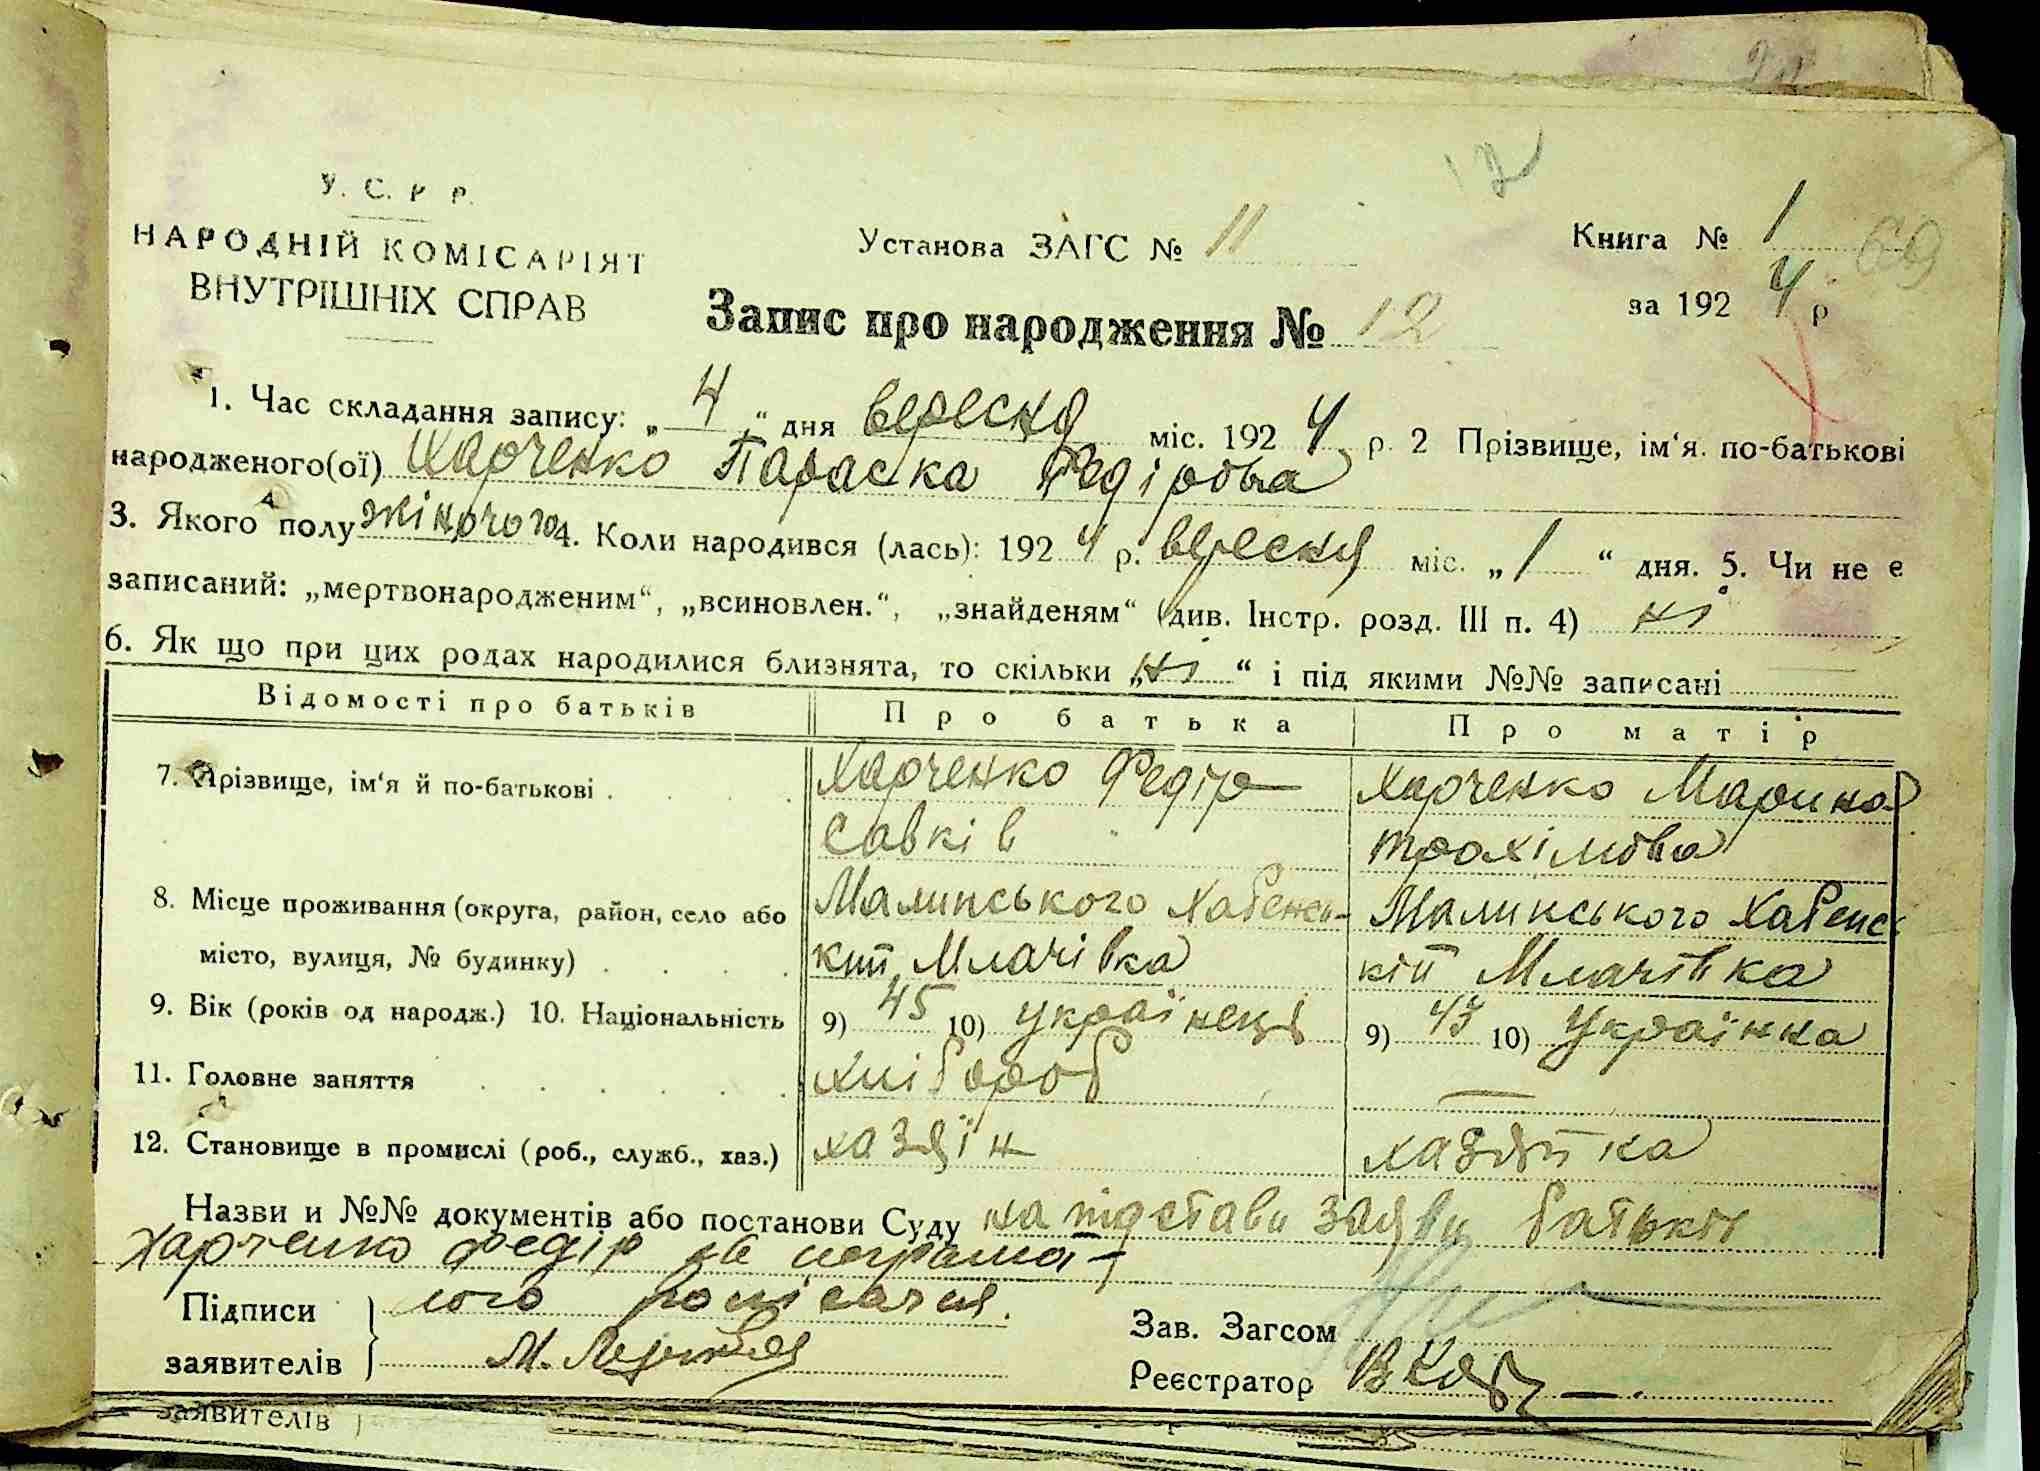 12
У. С. Р. Р.
НАРОДНІЙ КОМІСАРІЯТ
ВНУТРІШНІХ СПРАВ
Установа ЗАГС № 11
Книга № 1
69
за 192 4 р
Запис про народження № 12
1. Час складання запису: „ 4 “ дня вересня міс. 192 4 р. 2 Прізвище, ім‘я. по-батькові
народженого(ої) Харченко Параска Федірова
3. Якого полу жіночого 4. Коли народився (лась): 192 4 р. вересня міс. „ 1 “ дня. 5. Чи не є
записаний: „мертвонародженим“, „всиновлен.“, „знайденям“ (див. Інстр. розд. III п. 4) ні
6. Як що при цих родах народилися близнята, то скільки „ ні “ і під якими №№ записані
Відомості про батьків Про батька Про матір
7. Прізвище, ім‘я й по-батькові . Харченко Федір Харченко Марина
Савків Трохімова
8. Місце проживання (округа, район, село або Малинського Хабенсь- Малинського Хабенс-
місто, вулиця, № будинку) . кий Млачівка кій Млачівка
9. Вік (років од народж.) 10. Національність 9) 45 10) українець 9) 43 10) Українка
11. Головне заняття хлібороб —
12. Становище в промислі (роб., служб., хаз.) хазяїн хазяйка
Назви и №№ документів або постанови Суду на підстави заяви батьків
Харченко Федір
Підписи
заявителів М.
Зав. Загсом
Реєстратор
заявителів